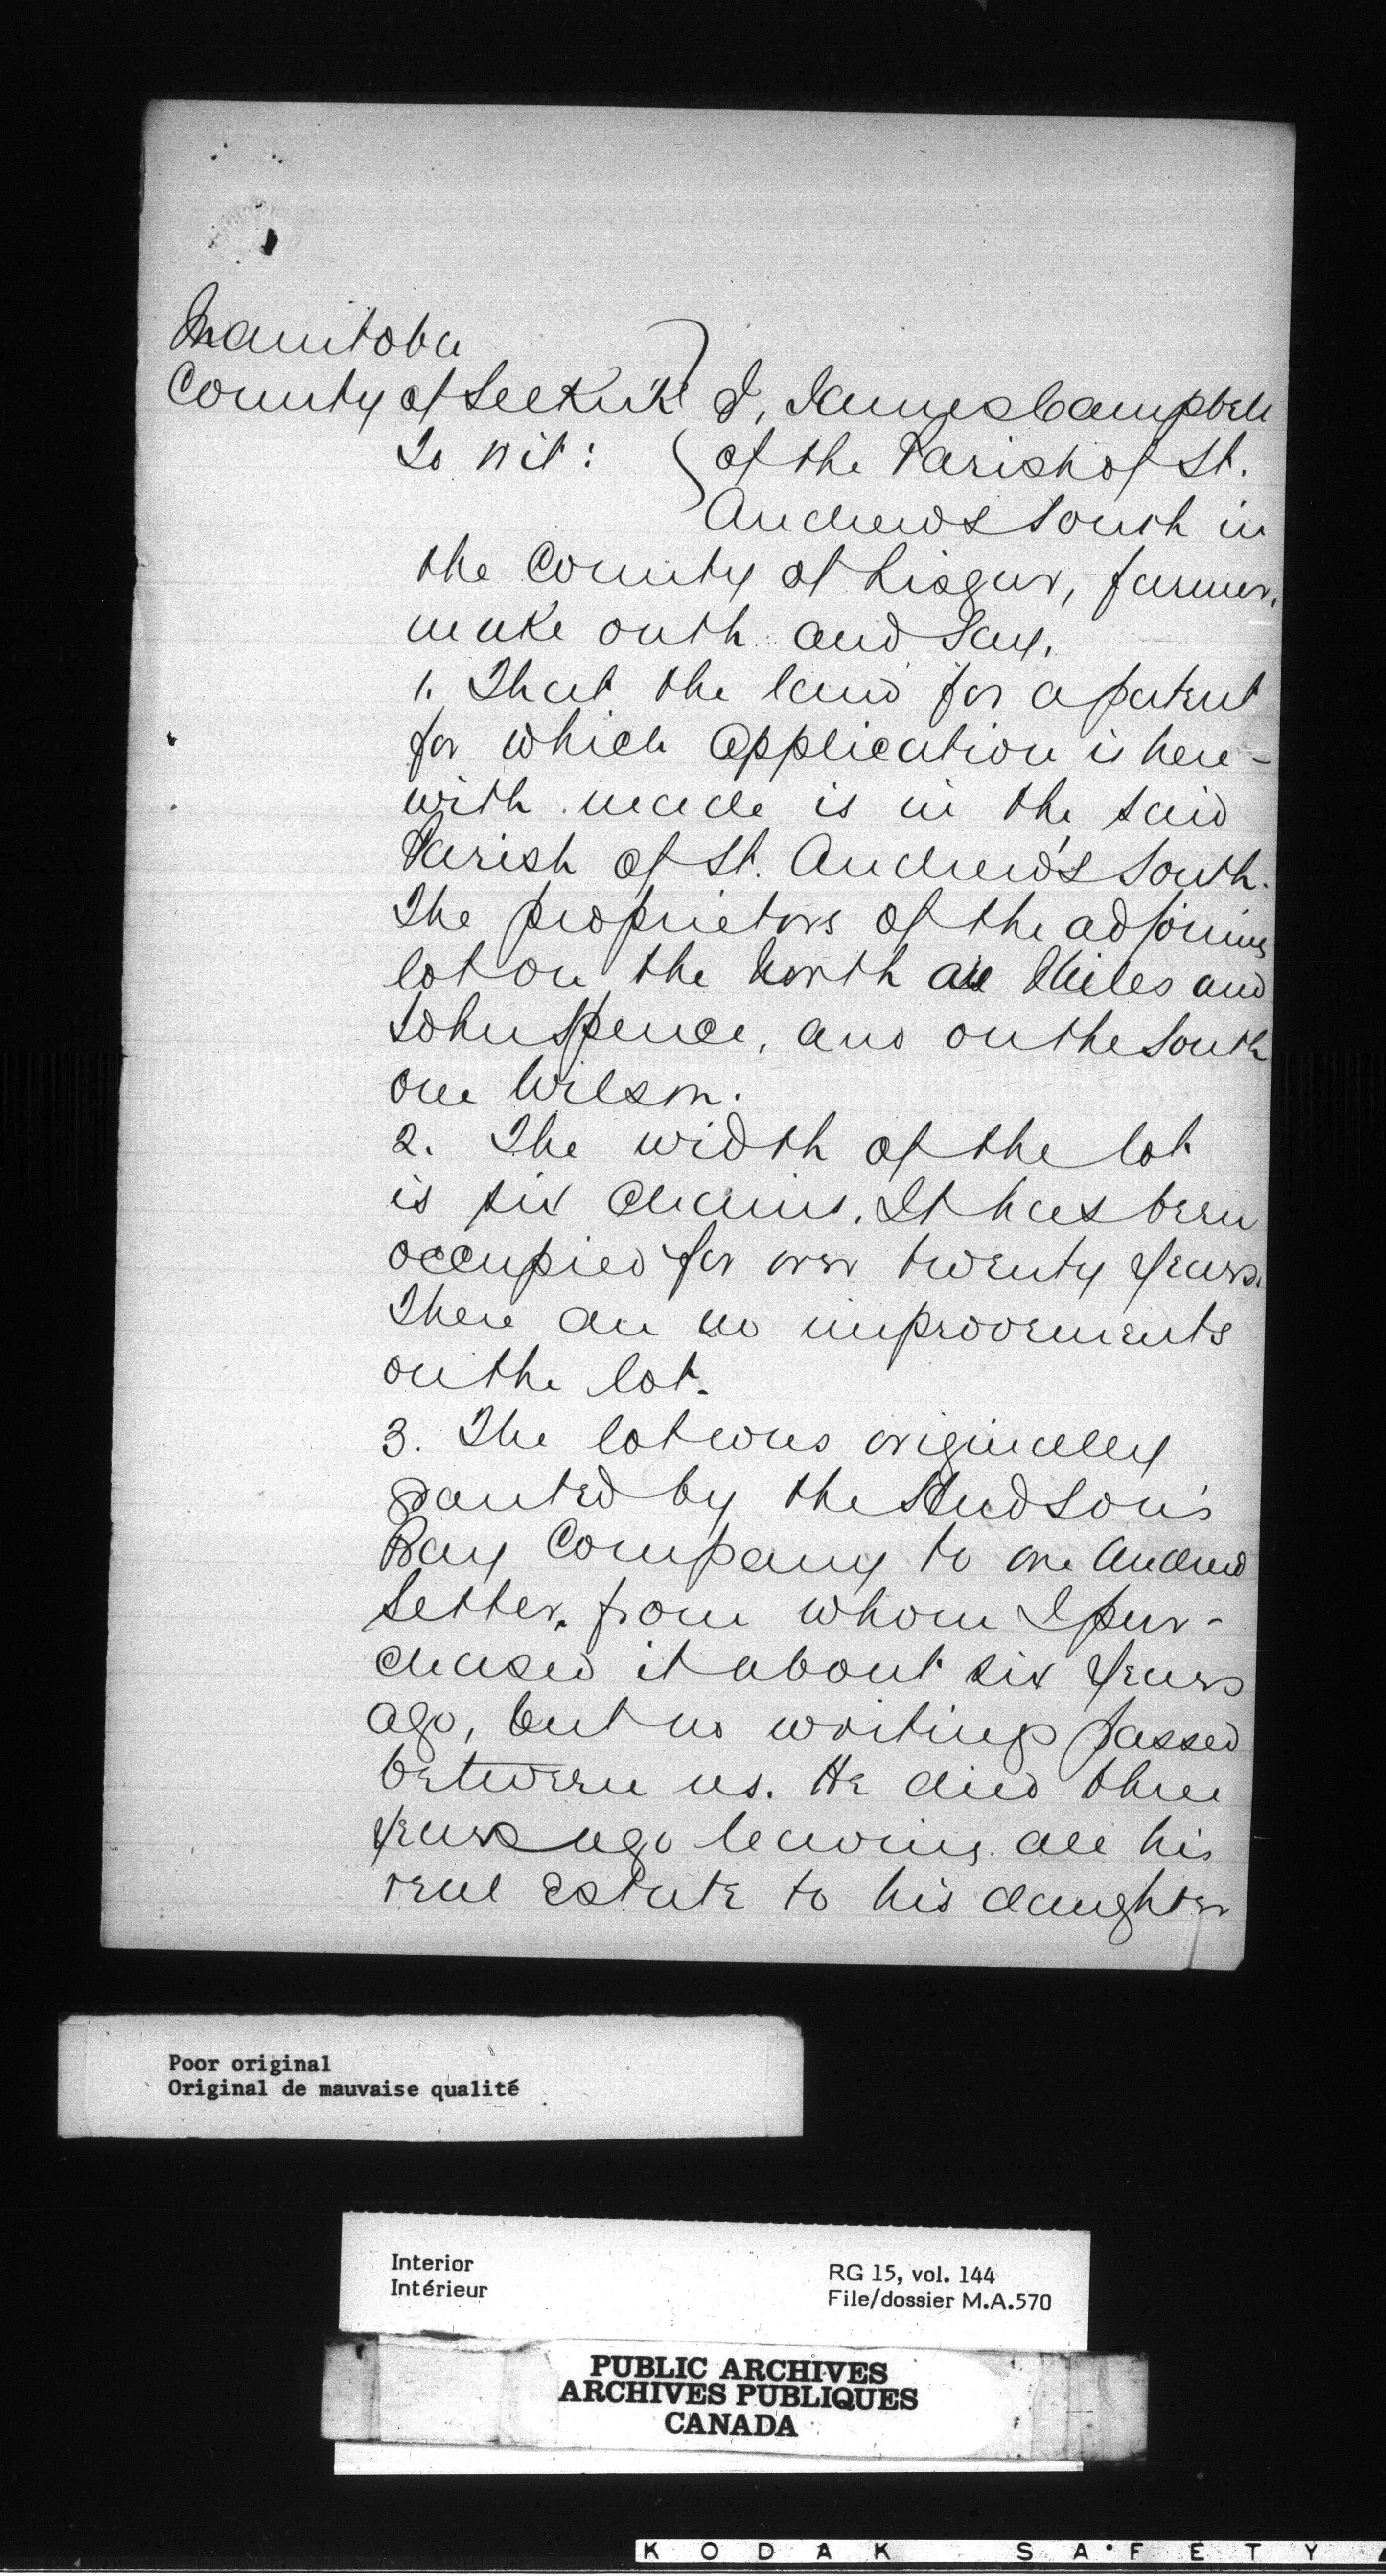 Manitoba
County of Selkirk
To wit:
I, James Campbell
of the Parish of St.
Andrews South in
the County of Lisgar, farmer,
make oath and say,
1. That the land for a patent
for which application is here-
with made is in the said
Parish of St. Andrew's South.
The proprietors of the adjoining
lot on the North are Miles and
John Spence, and on the South
one Wilson.
2. The width of the lot
is six chains. It has been
occupied for over twenty years.
There are no improvements
on the lot.
3. The lot was originally
granted by the Hudson's
Bay Company to one Andrew
Setter, from whom I pur-
chased it about six years
ago, but no writings passed
between us. He died three
years ago leaving all his
real estate to his daughter
Poor original
Original de mauvaise qualité
Interior
Intérieur
RG 15, vol. 144
File/dossier M.A.570
PUBLIC ARCHIVES
ARCHIVES PUBLIQUES
CANADA
KODAK SAFETY